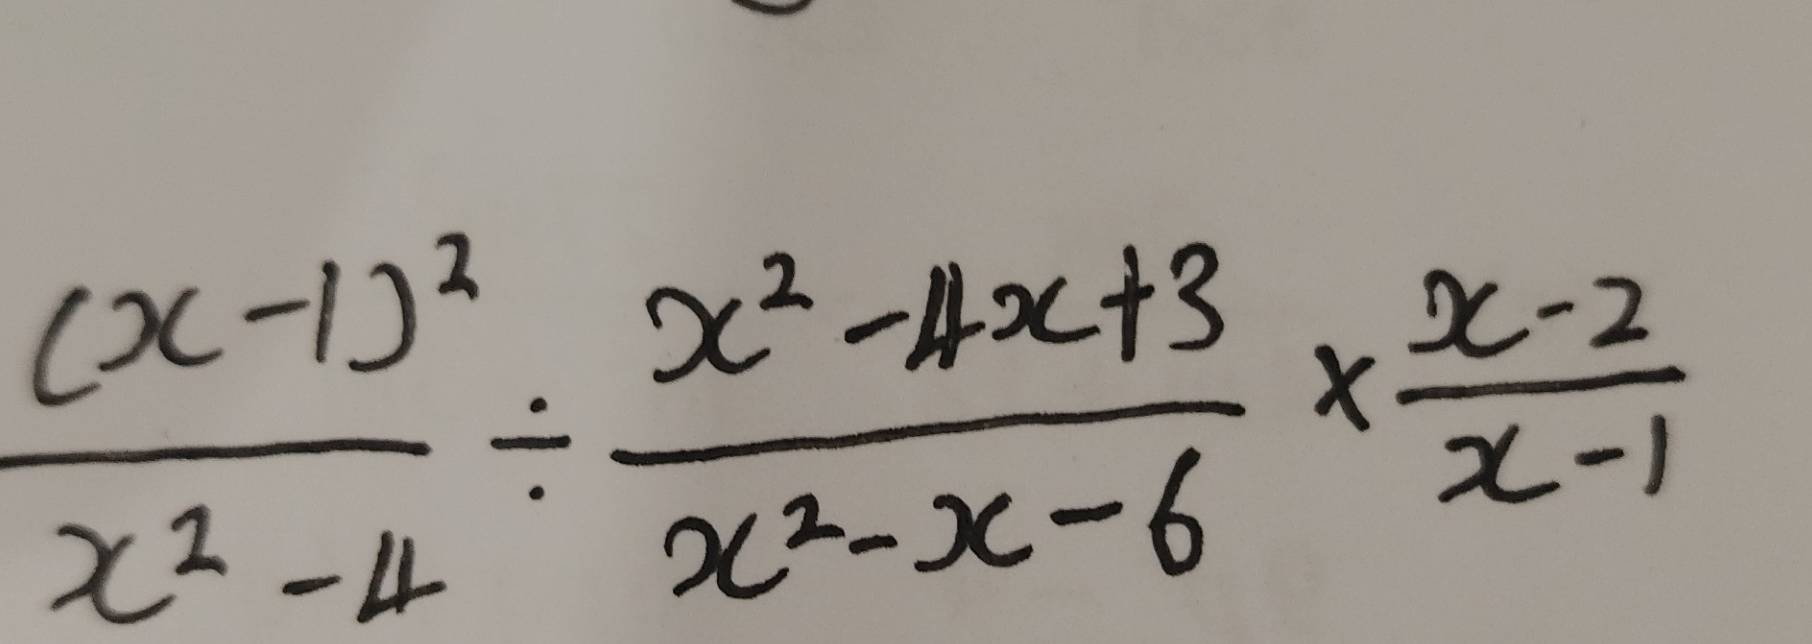 (x-1)² / x² - 4 ÷ x² - 4x + 3 / x² - x - 6 × x - 2 / x - 1